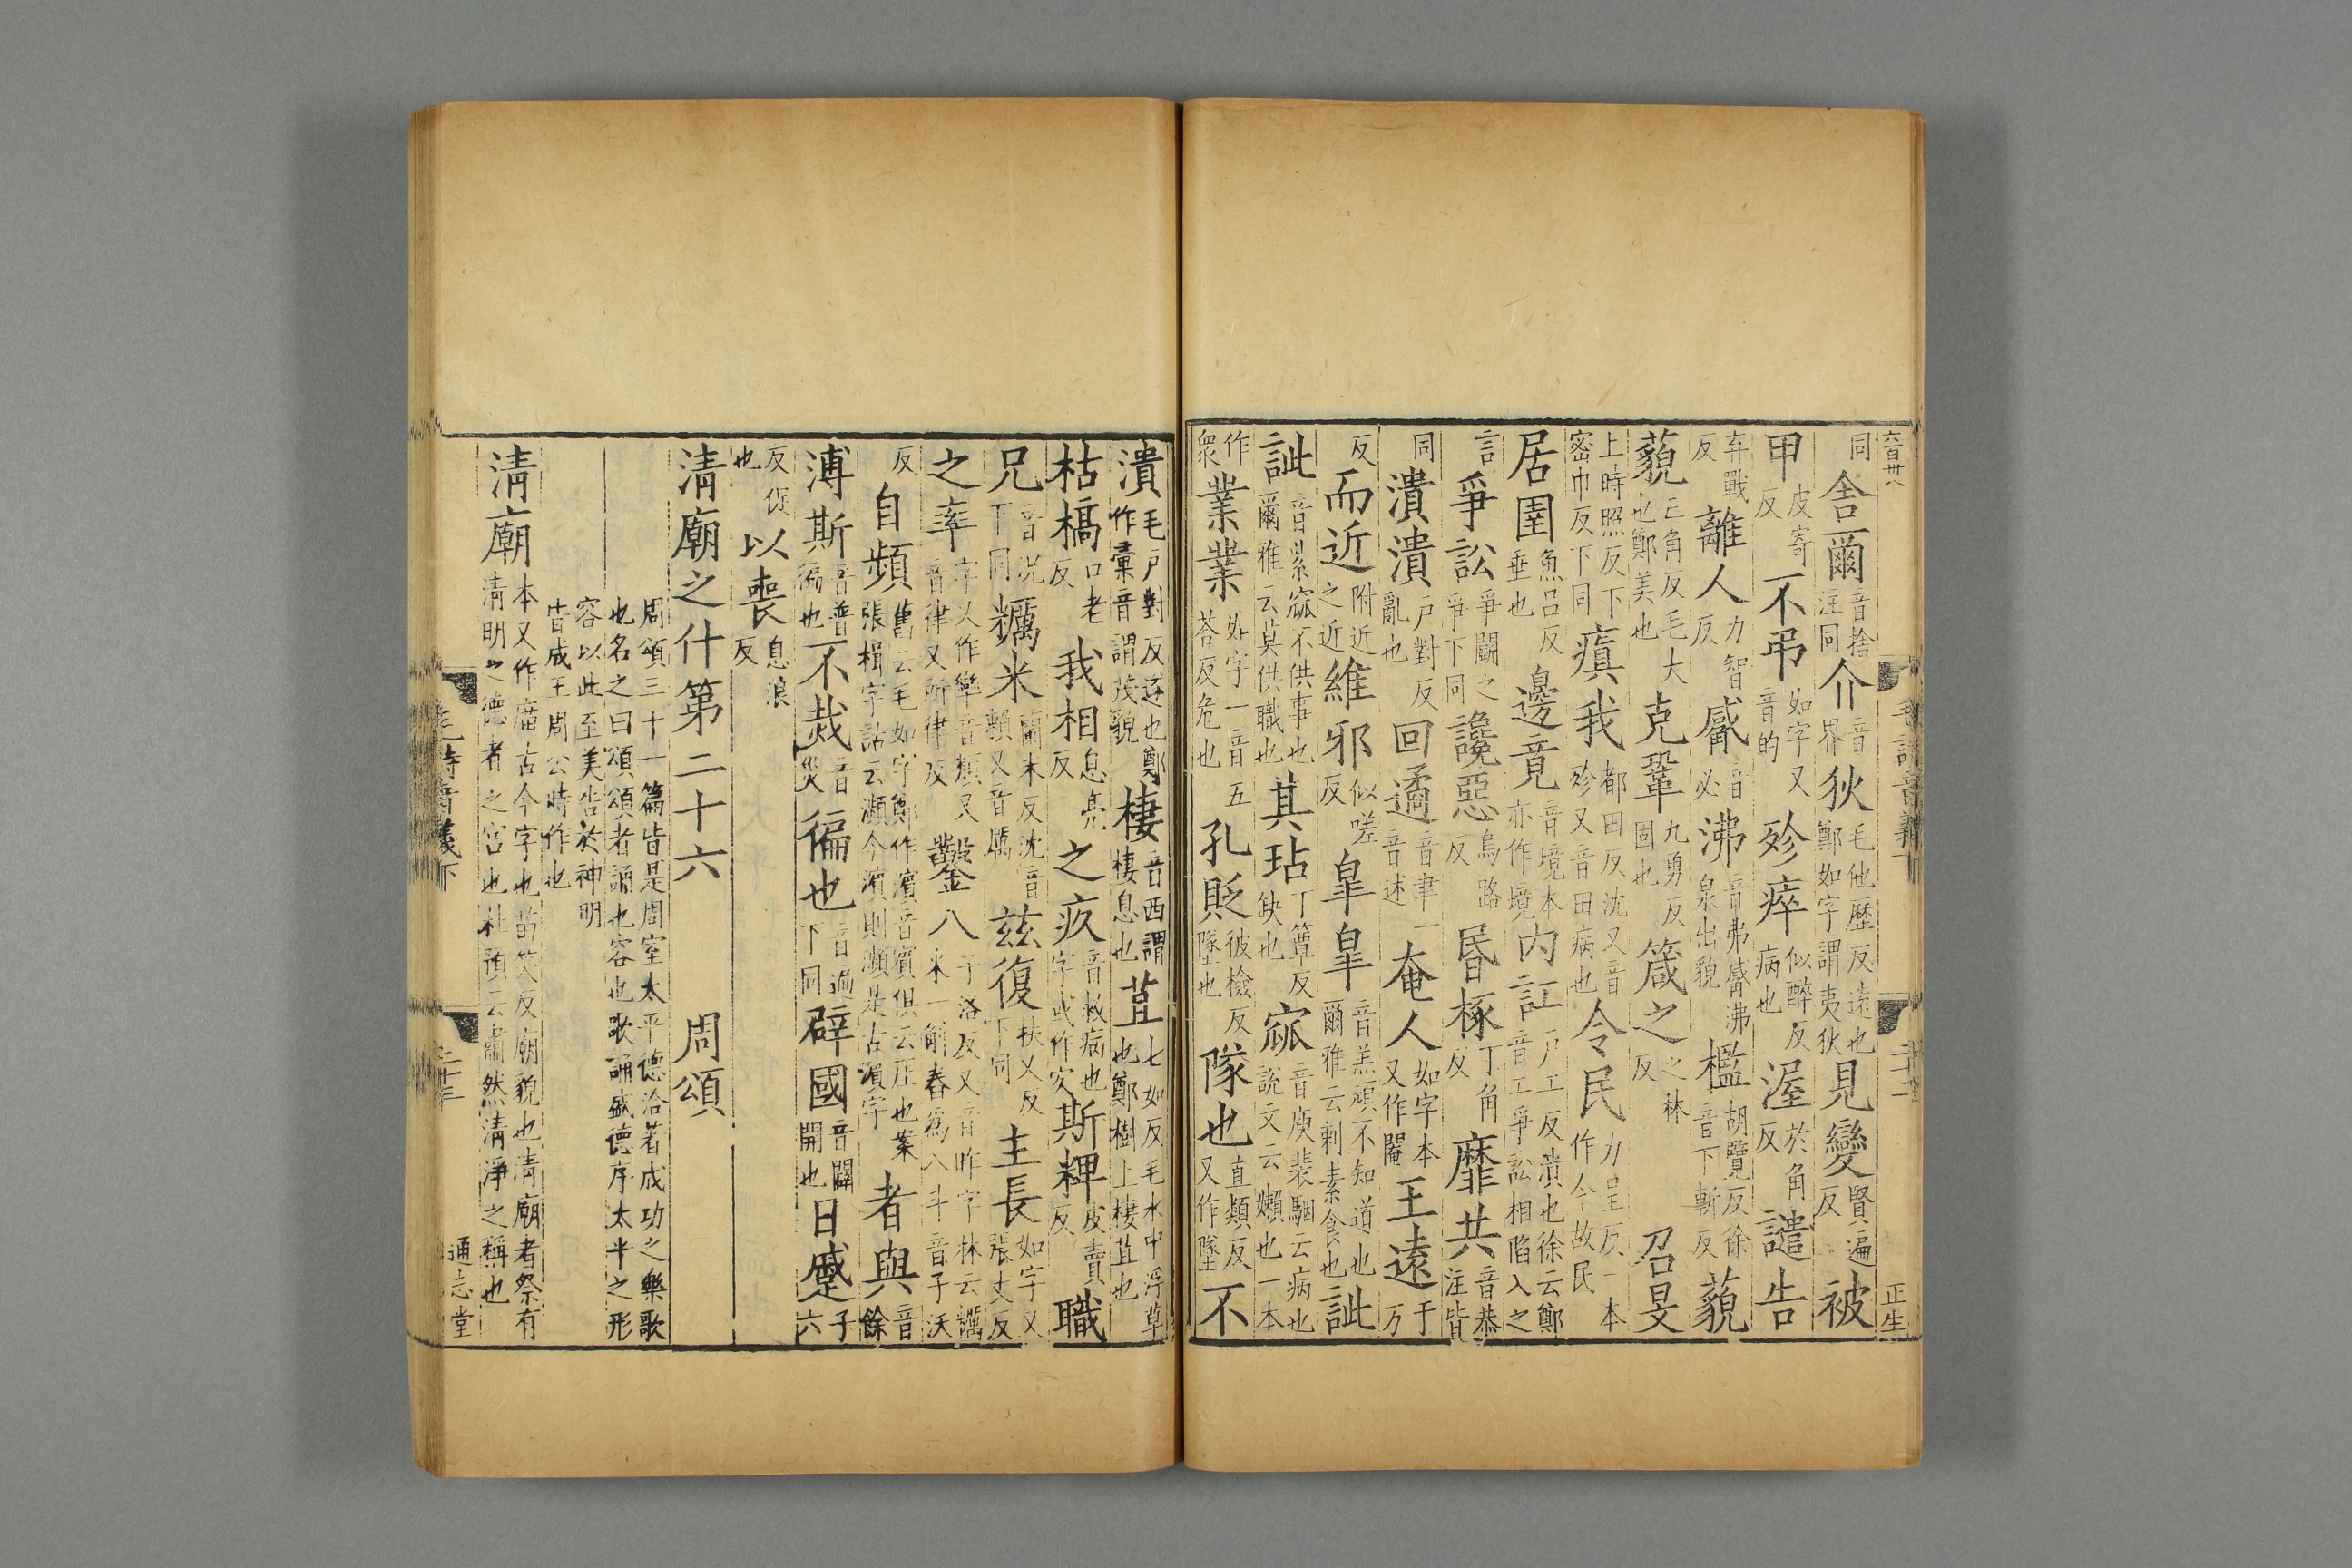 同舍爾音捨注同介音界狄毛他歷反遠也鄭如字謂夷狄見變賢遍反被
甲皮寄反不弔如字又音的殄瘁似醉反病也渥於角反譴告
弃戰反離人力智反觱音必沸音弗觱沸泉出貌檻胡覽反徐音下斬反藐
藐亡角反毛大也鄭美也克鞏九勇反固也箴之之林反 召旻
上時照反下密巾反下同瘨我都田反沈又音殄又音田病也令民力呈反一本作今故民
居圉魚呂反垂也邊竟音境本亦作境內訌戶工反潰也徐云鄭音工爭訟相陷入之
言爭訟爭鬭之爭下同讒惡烏路反昏椓丁角反靡共音恭注皆
同潰潰戶對反亂也回遹音聿一音述奄人如字本又作閹王遠于万
反而近附近之近維邪似嗟反皐皐音羔頑不知道也爾雅云刺素食也訿
訿音紫窳不供事也爾雅云莫供職也其玷丁簟反缺也窳音庾裴駰云病也說文云嬾也一本
作衆業業如字一音五荅反危也孔貶彼檢反墜也隊也直類反又作墜不
潰毛戶對反遂也鄭作彙音謂茂貌棲音西謂棲息也苴七如反毛水中浮草也鄭樹上棲苴也
枯槁口老反我相息亮反之疚音救病也字或作㝌斯粺皮賣反職
兄音況下同糲米蘭末反沈音賴又音厲茲復扶又反下同主長如字又張丈反
之率字又作䢦音類又音律又所律反鑿八子洛反又音昨字林云糲米一斛舂爲八斗音子沃
反自頻舊云毛如字鄭作濱音賓俱云厓也案張揖字詁云瀕今濱則瀕是古濱字者與音餘
溥斯音普徧也不烖音災徧也音遍下同辟國音闢開也日蹙子六
反促也以喪息浪反
清廟之什第二十六 周頌
周頌三十一篇皆是周室太平德洽著成功之樂歌也名之曰頌頌者誦也容也歌誦盛德序太平之形
容以此至美告於神明皆成王周公時作也
清廟本又作庿古今字也苗笑反廟貌也清廟者祭有清明之德者之宮也杜預云肅然清淨之稱也
毛詩音義下
正生
通志堂